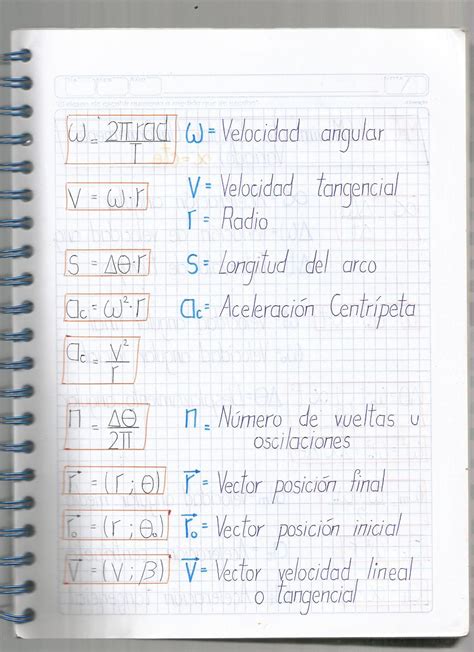 ω = 2π rad / T   ω = Velocidad angular
V = ω·r   V = Velocidad tangencial
r = Radio
S = Δθ·r   S = Longitud del arco
ac = ω²·r   ac = Aceleración Centrípeta
ac = V² / r
n = Δθ / 2π   n = Número de vueltas u
oscilaciones
r⃗ = (r ; θ)   r⃗ = Vector posición final
r⃗₀ = (r ; θ₀)   r⃗₀ = Vector posición inicial
V⃗ = (V ; β)   V⃗ = Vector velocidad lineal
o tangencial